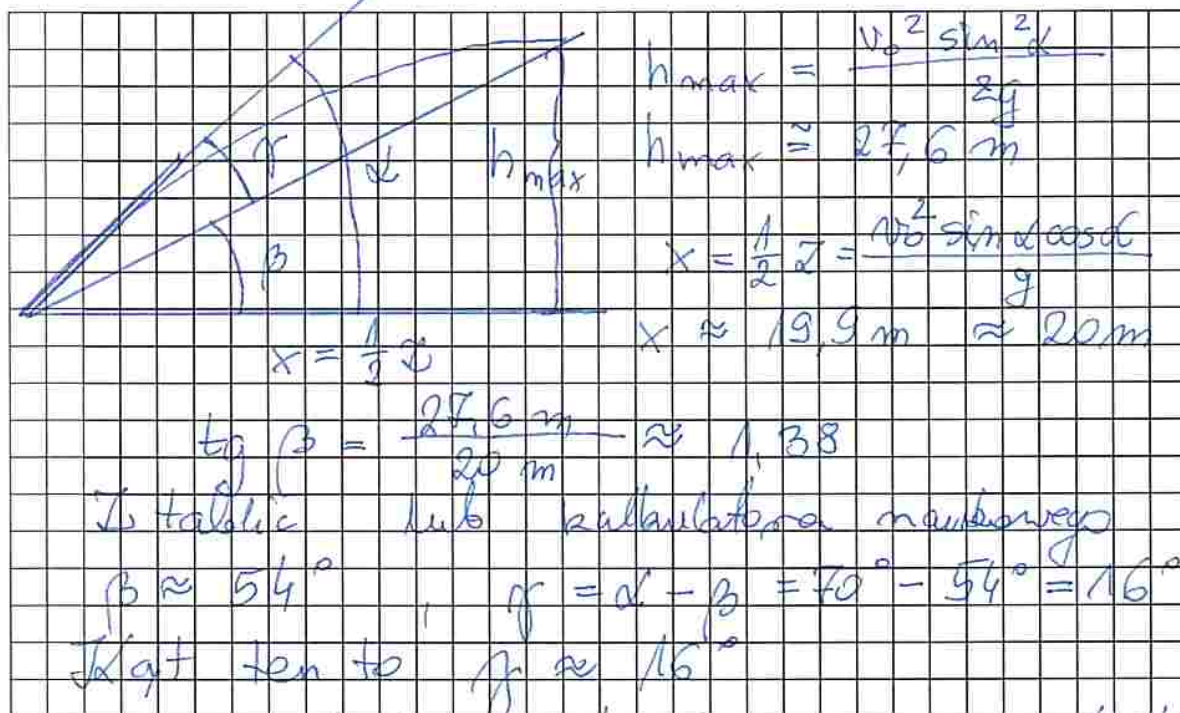 h max = v₀² sin²α / 2g
h max ≈ 27,6 m
γ α h max
β
x = ½ Z = v₀² sin α cos α / g
x = ½ Z
x ≈ 19,9 m ≈ 20 m
tg β = 27,6 m / 20 m ≈ 1,38
Z tablic lub kalkulatora naukowego
β ≈ 54° , γ = α - β = 70° - 54° = 16°
Kąt ten to γ ≈ 16°